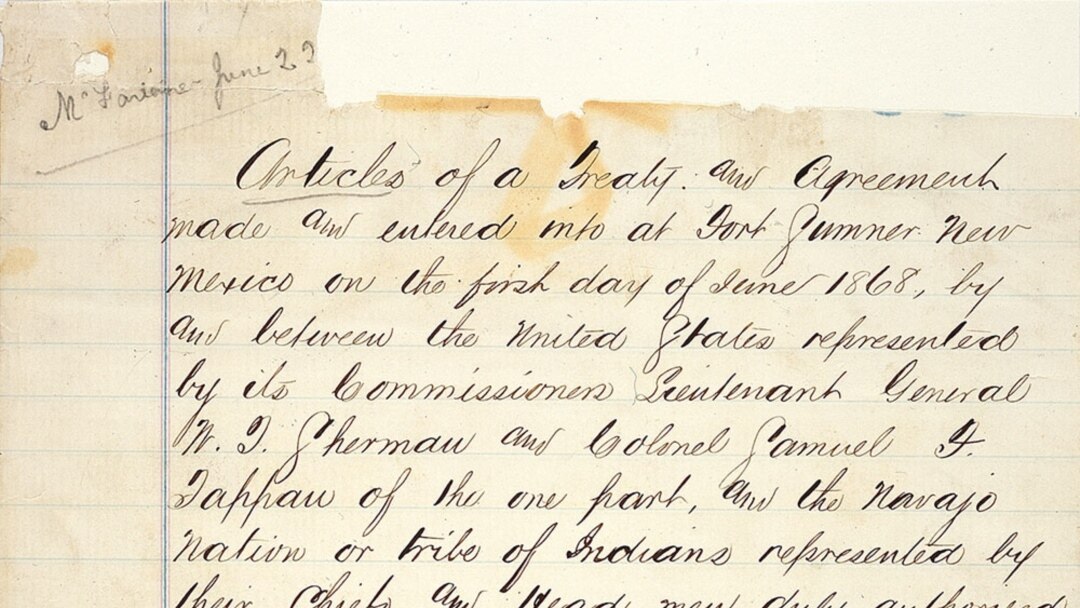 June 23
Articles of a Treaty and Agreement
made and entered into at Fort Sumner New
Mexico on the first day of June 1868, by
and between the United States represented
by its Commissioners Lieutenant General
W. T. Sherman and Colonel Samuel F.
Tappan of the one part, and the Navajo
Nation or tribe of Indians represented by
their Chiefs and Head men duly authorised